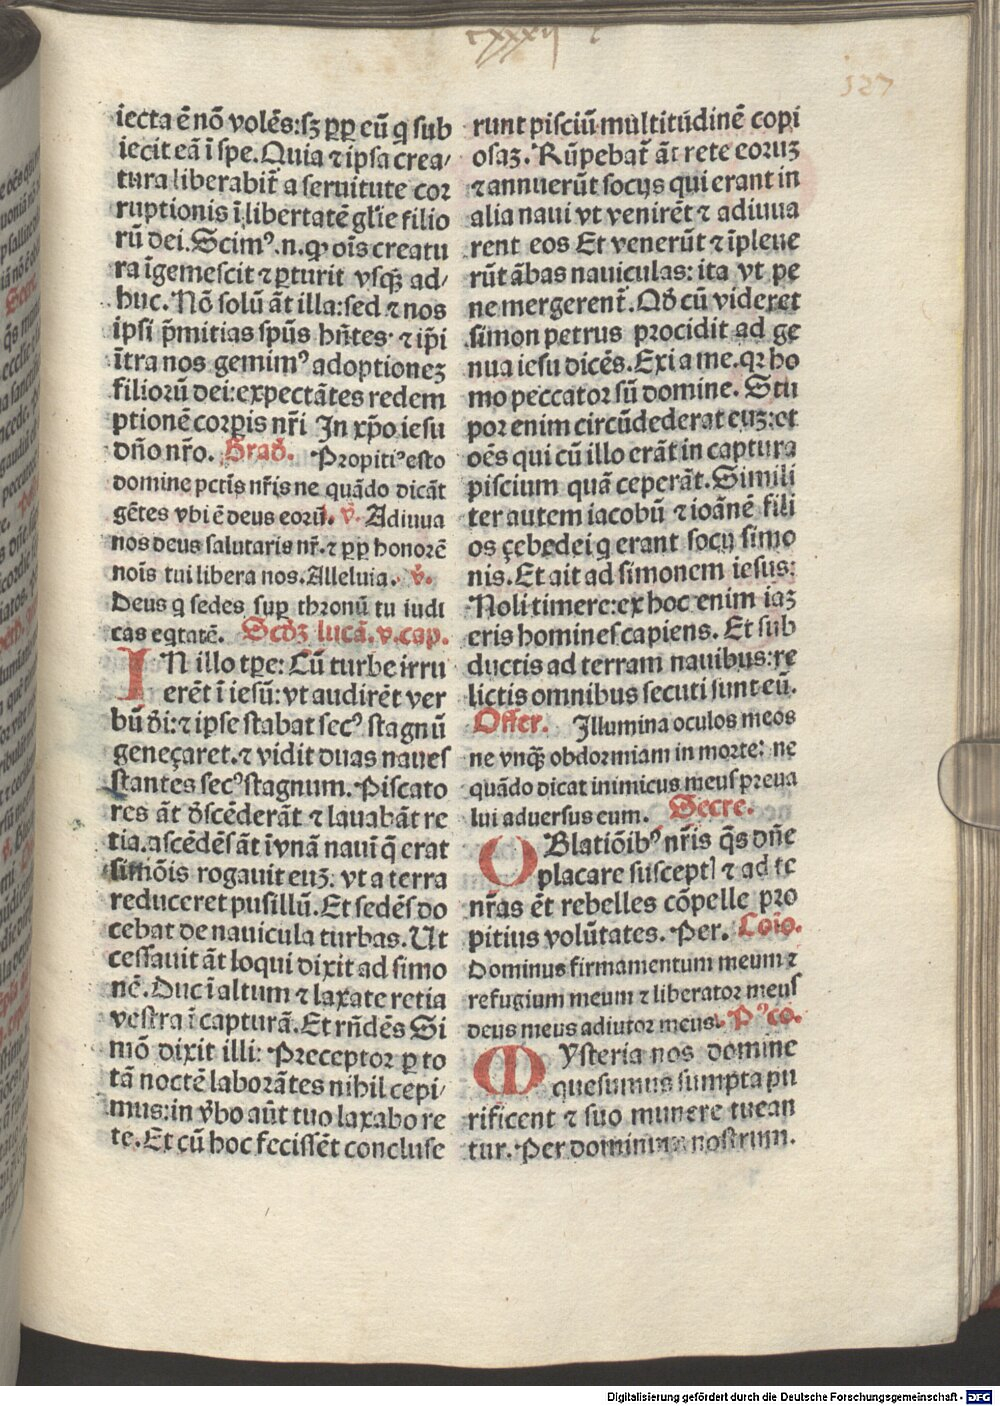 cxxxij
127
iecta ē nō volēs: sꝫ ꝓpꝑ eū q̇ sub
iecit eā ī spe. Quia ⁊ ipsa crea⸗
tura liberabit̃ a seruitute cor
ruptionis ī libertatē gl̃ie filio
rū dei. Scimꝰ .n. ꝙ oīs creatu
ra īgemescit ⁊ ꝑturit vsqꝫ ad⸗
huc. Nō solū āt illa: sed ⁊ nos
ipsi p̃mitias sp̃us hñtes· ⁊ ip̃i
īt̃ra nos gemimꝰ adoptioneꝫ
filiorū dei: expectātes redem
ptionē corꝑis nr̃i In xp̃o iesu
dño nr̃o. Grad̃. Propitiꝰ esto
domine pctīs nr̃is ne quādo dicāt
gētes vbi ē deus eorū. v̇. Adiuua
nos deus salutaris nr̃. ⁊ ꝓpꝑ honorē
noīs tui libera nos. Alleluia. v̇.
Deus q̇ sedes suꝑ thronū tu iudi
cas eq̇tatē. Scd̃ꝫ lucā. v. cap.
IN illo tꝑe: Cū turbe irru
erēt ī iesū: vt audirēt ver
bū d̃i: ⁊ ipse stabat secꝰ stagnū
geneçaret. ⁊ vidit duas naues
stantes secꝰ stagnum. Piscato
res āt d̃scēderāt ⁊ lauabāt re
tia. ascēdēs āt ī vnā nauī q̄ erat
simōis rogauit euꝫ. vt a terra
reduceret pusillū. Et sedēs do
cebat de nauicula turbas. Ut
cessauit āt loqui dixit ad simo
nē. Duc ī altum ⁊ laxate retia
vestra ī capturā. Et rñdēs Si
mō dixit illi: Preceptor ꝑ to
tā noctē laborātes nihil cepi⸗
mus: in v̾bo aūt tuo laxabo re
te. Et cū hoc fecissēt concluse
runt pisciū multitudinē copi
osaꝫ. Rūpebat̃ āt rete eoruꝫ
⁊ annuerūt socijs qui erant in
alia naui vt venirēt ⁊ adiuua
rent eos Et venerūt ⁊ īpleue
rūt ābas nauiculas: ita vt pe
ne mergerent̃. Qd̃ cū videret
simon petrus procidit ad ge
nua iesu dicēs. Exi a me. qꝛ ho
mo peccator sū domine. Stu
por enim circūdederat euꝫ: et
oēs qui cū illo erāt in captura
piscium quā ceperāt. Simili
ter autem iacobū ⁊ ioānē fili
os çebedei q̇ erant socij simo
nis. Et ait ad simonem iesus:
Noli timere: ex hoc enim iaꝫ
eris homines capiens. Et sub
ductis ad terram nauibus: re
lictis omnibus secuti sunt eū.
Offer. Illumina oculos meos
ne vnqꝫ obdormiam in morte: ne
quādo dicat inimicus meus preua
lui aduersus eum. Secre.
OBlatiōibꝰ nr̃is q̄s dñe
placare susceptꝭ ⁊ ad te
nr̃as ēt rebelles cōpelle pro
pitius volūtates. Per. Coīo.
Dominus firmamentum meum ⁊
refugium meum ⁊ liberator meus
deus meus adiutor meus. Pꝰcō.
MYsteria nos domine
quesumus sumpta pu
rificent ⁊ suo munere tuean
tur. Per dominum nostrum.
Digitalisierung gefördert durch die Deutsche Forschungsgemeinschaft - DFG